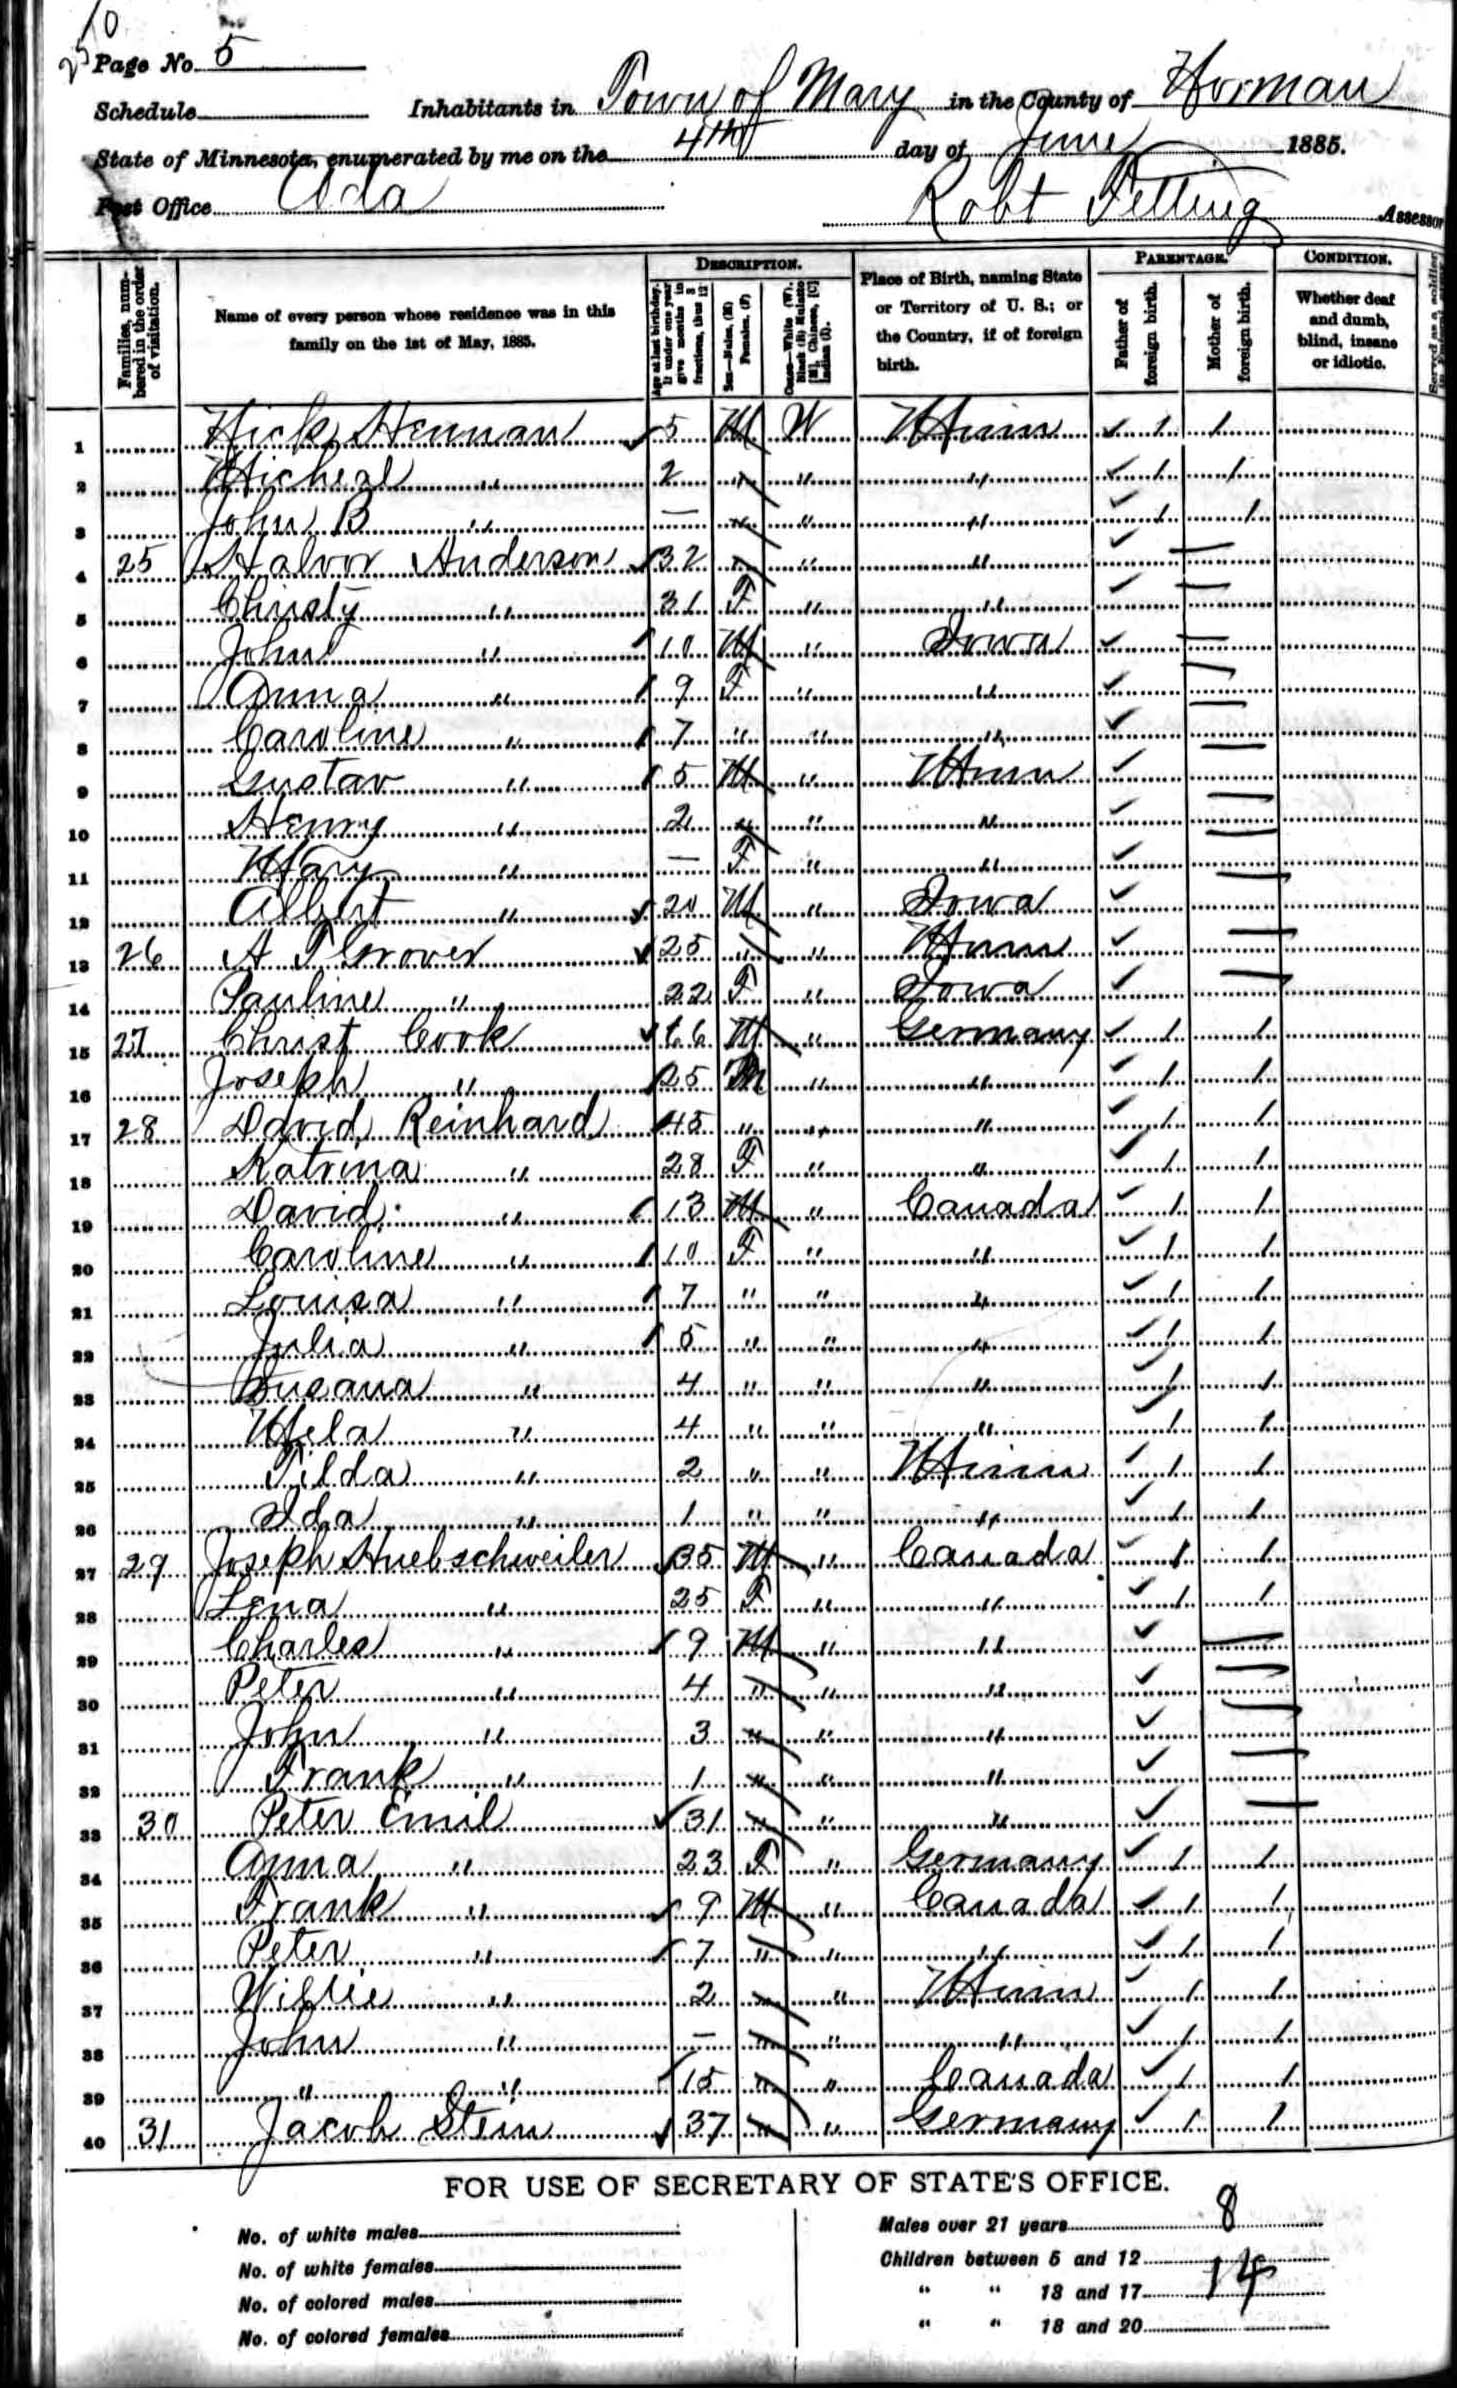 10
25
Page No. 5
Schedule Inhabitants in Town of Mary in the County of Norman
State of Minnesota, enumerated by me on the 4th day of June 1885.
Post Office Ada Robt Fetting Assessor
Families, numbered in the order of visitation.
Name of every person whose residence was in this family on the 1st of May, 1885.
DESCRIPTION.
Age at last birthday. If under one year give months in fractions, thus 3/12
Sex—Males, (M) Females, (F)
Color—White (W), Black (B) Mulatto [M], Chinese, [C] Indian (I).
Place of Birth, naming State or Territory of U. S.; or the Country, if of foreign birth.
PARENTAGE.
Father of foreign birth.
Mother of foreign birth.
CONDITION.
Whether deaf and dumb, blind, insane or idiotic.
Served as a soldier
1 Nick Herman ✓ 5 M W Minn ✓ 1 1
2 Micheal " 2 " " " ✓ 1 1
3 John B " — " " " ✓ 1 1
4 25 Halvor Anderson ✓ 32 " " " ✓ —
5 Christy " 31 F " " ✓ —
6 John " 10 M " Iowa ✓ —
7 Anna " 9 F " " ✓ —
8 Caroline " 7 " " " ✓ —
9 Gustav " 5 M " Minn ✓ —
10 Henry " 2 " " " ✓ —
11 Mary " — F " " ✓ —
12 Albert " ✓ 20 M " Iowa ✓ —
13 26 A T Grover ✓ 25 " " Minn ✓ —
14 Pauline " 22 F " Iowa ✓ —
15 27 Christ Cook ✓ 66 M " Germany ✓ 1 1
16 Joseph " 25 M " " ✓ 1 1
17 28 David Reinhard 45 " " " ✓ 1 1
18 Katrina " 28 F " " ✓ 1 1
19 David " 13 M " Canada ✓ 1 1
20 Caroline " 10 F " " ✓ 1 1
21 Louisa " 7 " " " ✓ 1 1
22 Julia " 5 " " " ✓ 1 1
23 Susana " 4 " " " ✓ 1 1
24 Mela " 4 " " " ✓ 1 1
25 Tilda " 2 " " Minn ✓ 1 1
26 Ida " 1 " " " ✓ 1 1
27 29 Joseph Huebschweiler ✓ 35 M " Canada ✓ 1 1
28 Lena " 25 F " " ✓ 1 1
29 Charles " ✓ 9 M " " ✓ —
30 Peter " 4 " " " ✓ —
31 John " 3 " " " ✓ —
32 Frank " 1 " " " ✓ —
33 30 Peter Emil ✓ 31 " " " ✓ —
34 Anna " 23 F " Germany ✓ 1 1
35 Frank " ✓ 9 M " Canada ✓ 1 1
36 Peter " ✓ 7 " " " ✓ 1 1
37 Willie " 2 " " Minn ✓ 1 1
38 John " — " " " ✓ 1 1
39 " " ✓ 15 " " Canada ✓ 1 1
40 31 Jacob Stein ✓ 37 " " Germany ✓ 1 1
FOR USE OF SECRETARY OF STATE'S OFFICE.
No. of white males
No. of white females
No. of colored males
No. of colored females
Males over 21 years 8
Children between 5 and 12 14
" " 13 and 17
" " 18 and 20